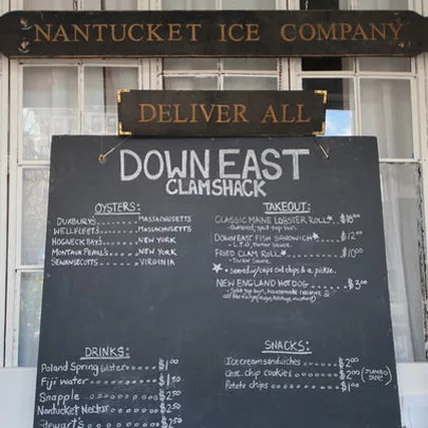 NANTUCKET ICE COMPANY
DELIVER ALL
DOWN EAST
CLAMSHACK
OYSTERS:
DUXBURY'S......MASSACHUSETTS
WELLFLEETS......MASSACHUSETTS
HOGNECK BAYS......NEW YORK
MONTAUK PEARLS.....NEW YORK
SEWANSECOTTS......VIRGINIA
TAKEOUT:
CLASSIC MAINE LOBSTER ROLL*..
Buttered, split top bun
DOWNEAST FISH SANDWICH*...$12
- L.T.O, Tartar Sauce
FRIED CLAM ROLL*......$10
- Tartar Sauce
* served w/cape cod chips & a pickle.
NEW ENGLAND HOTDOG......$3
- Split top bun, homemade
DRINKS:
Poland Spring Water....$1
Fiji water.......$1.50
Snapple.......$2.50
Nantucket Nectar....$2.50
Stewart's
SNACKS:
Ice cream sandwiches.....$2
Choc. chip cookies.....$2 (JUMBO SIZE)
Potato chips.....$1